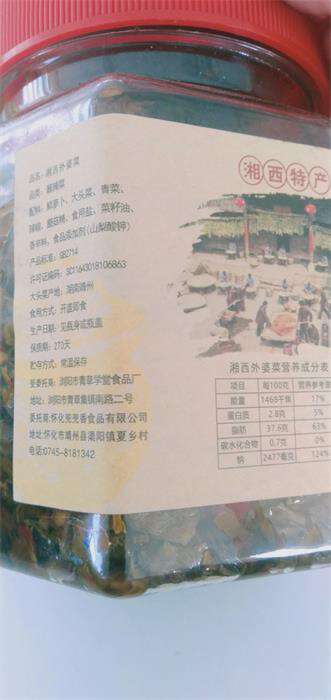 品名：湘西外婆菜
品类：酱腌菜
配料：鲜萝卜、大头菜、青菜、
辣椒、蘑菇精、食用盐、菜籽油、
香辛料，食品添加剂(山梨酸钾)
产品标准：GB2714
许可证编码：SC11643018106863
大头菜产地：湖南靖州
食用方式：开盖即食
生产日期：见瓶身或瓶盖
保质期：270天
贮存方式：常温保存
受委托商：浏阳市青草学堂食品厂
地址：浏阳市青草集镇南路二号
委托商：怀化兜兜香食品有限公司
地址:怀化市靖州县渠阳镇夏乡村
电话:0745-8181342
湘西特产
湘西外婆菜营养成分表
项目 每100克 营养参考
能量 1469千焦 17%
蛋白质 2.8克 5%
脂肪 37.6克 63%
碳水化合物 0.7克 0%
钠 2477毫克 124%